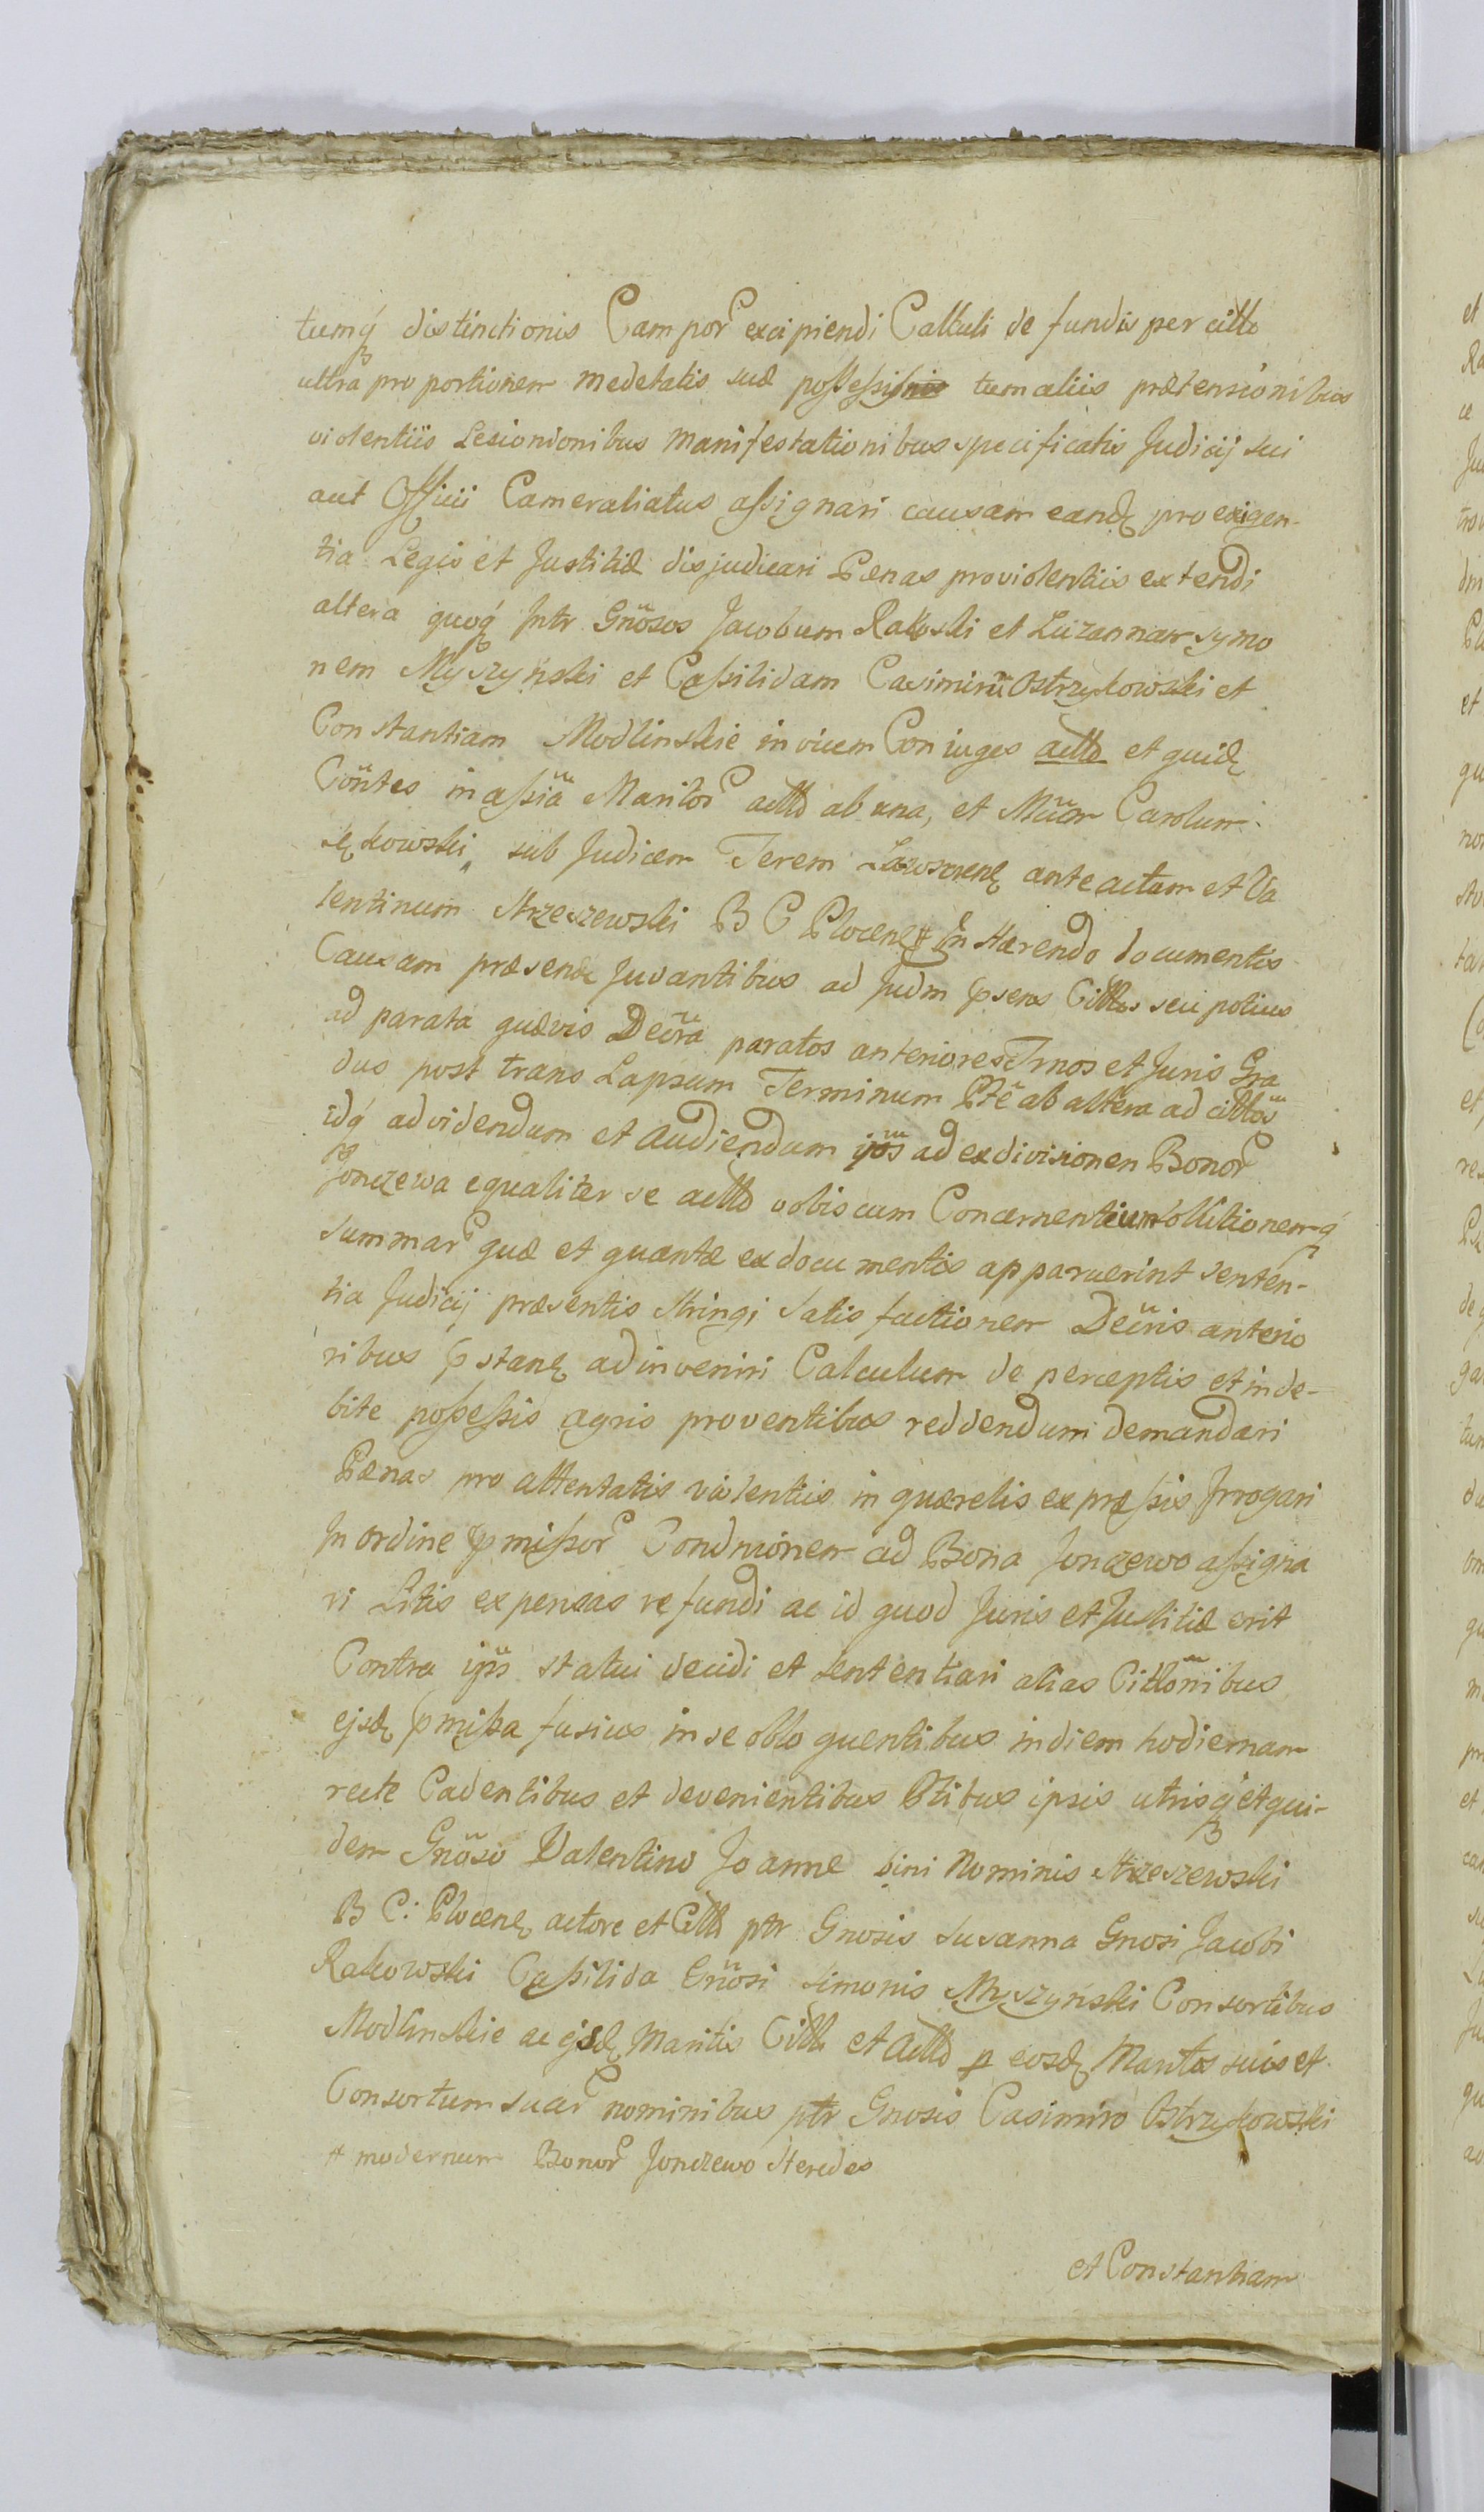 tumq́ distinctionis Campor excipiendi Calculi de fundis per citto
ultra proportionem medetatis suæ possessis tum aliis prætensionibus
violentiis Lesiondonibus manifestationibus specificatis Judicij sui
aut Officii Cameraliatus assignari causam eandę pro exigen-
tia Legis et Justitiæ disjudicari Pænas pro violentiis extendi
altera quoq́ Intr Gnosos Jacobum Rakoski et Zuzannam symo
nem Myszyński et Cassildam Casimirū Ostrzykowski et
Constantiam Modlinskie invicem Coniuges actto et quidę
Cōntes in assiā Maritor actto ab una, et Mūm Carolum
sękowski sub Judicem Terem anteactum et Va
lentinum Strzeszewski B C Plocenę # In Hærendo documentis
Causam præsenę Juvantibus ad Judm psens Cittos seu potius
ad parata quævis Decra paratos anteriores Trnos et Juris Gra
dus post trans Lapsum Terminum Pte ab altera ad cittos
idq́ ad videndum et Audiendum ipos ad exdivisionen Bonor
Jonczewa equaliter se actto vobiscum Concernentium sollutionemq́
summar quæ et quantæ ex documentis apparuerint senten-
tia Judicij præsentis Stringi Satisfactionem Decris anterio
ribus pstanę adinveniri Calculum de perceptis et inde-
bite possessis agris proventibus reddendum demandari
Pænas pro attentatis violentiis in quærelis expræssis Irrogari
In ordine pmissor Condnionem ad Bona Jonczewo assigna
ri Litis expensas refundi ac id quod Juris et Justitiæ erit
Contra ipss statui decidi et sententiari alias Cittonibus
ejsdę pmissa fusius in se obloquentibus in diem hodiernam
recte Cadentibus et devenientibus Ptibus ipsis utrisq́ et qui-
dem Gnoso Valentino Joanne bini Nominis Strzeszewski
B C: Plocenę actore et Citto ptr Gnosis Susanna Gnosi Jacobi
Rakowski Cassilida Gnosi Simonis Myszynski Consortibus
Modlinskie ac ejsdę Maritis Citto et Actto p eosdę Maritos suis et
Consortum suar nominibus ptr Gnosis Casimiro Ostrzykowski
# modernum Bonor Jonczewo Heredes
et Constantiam